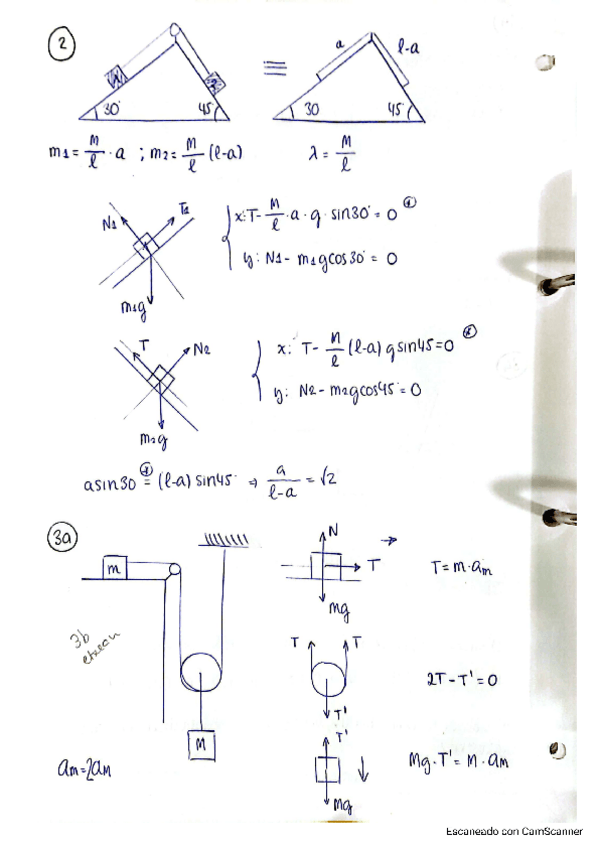 2
1 2
30° 45°
a l-a
30 45
m1 = M/l · a ; m2 = M/l (l-a) λ = M/l
N1 T1
m1g
x: T - M/l · a · g · sin30° = 0 (*)
y: N1 - m1gcos30° = 0
T N2
m2g
x: T - M/l (l-a) g sin45 = 0 (*)
y: N2 - m2gcos45° = 0
asin30 (*)= (l-a) sin45° → a/(l-a) = √2
3a
m
M
3b
am = 2aM
N
T
mg
T = m·am
T T
T'
2T - T' = 0
T'
Mg
Mg - T' = M · aM
Escaneado con CamScanner